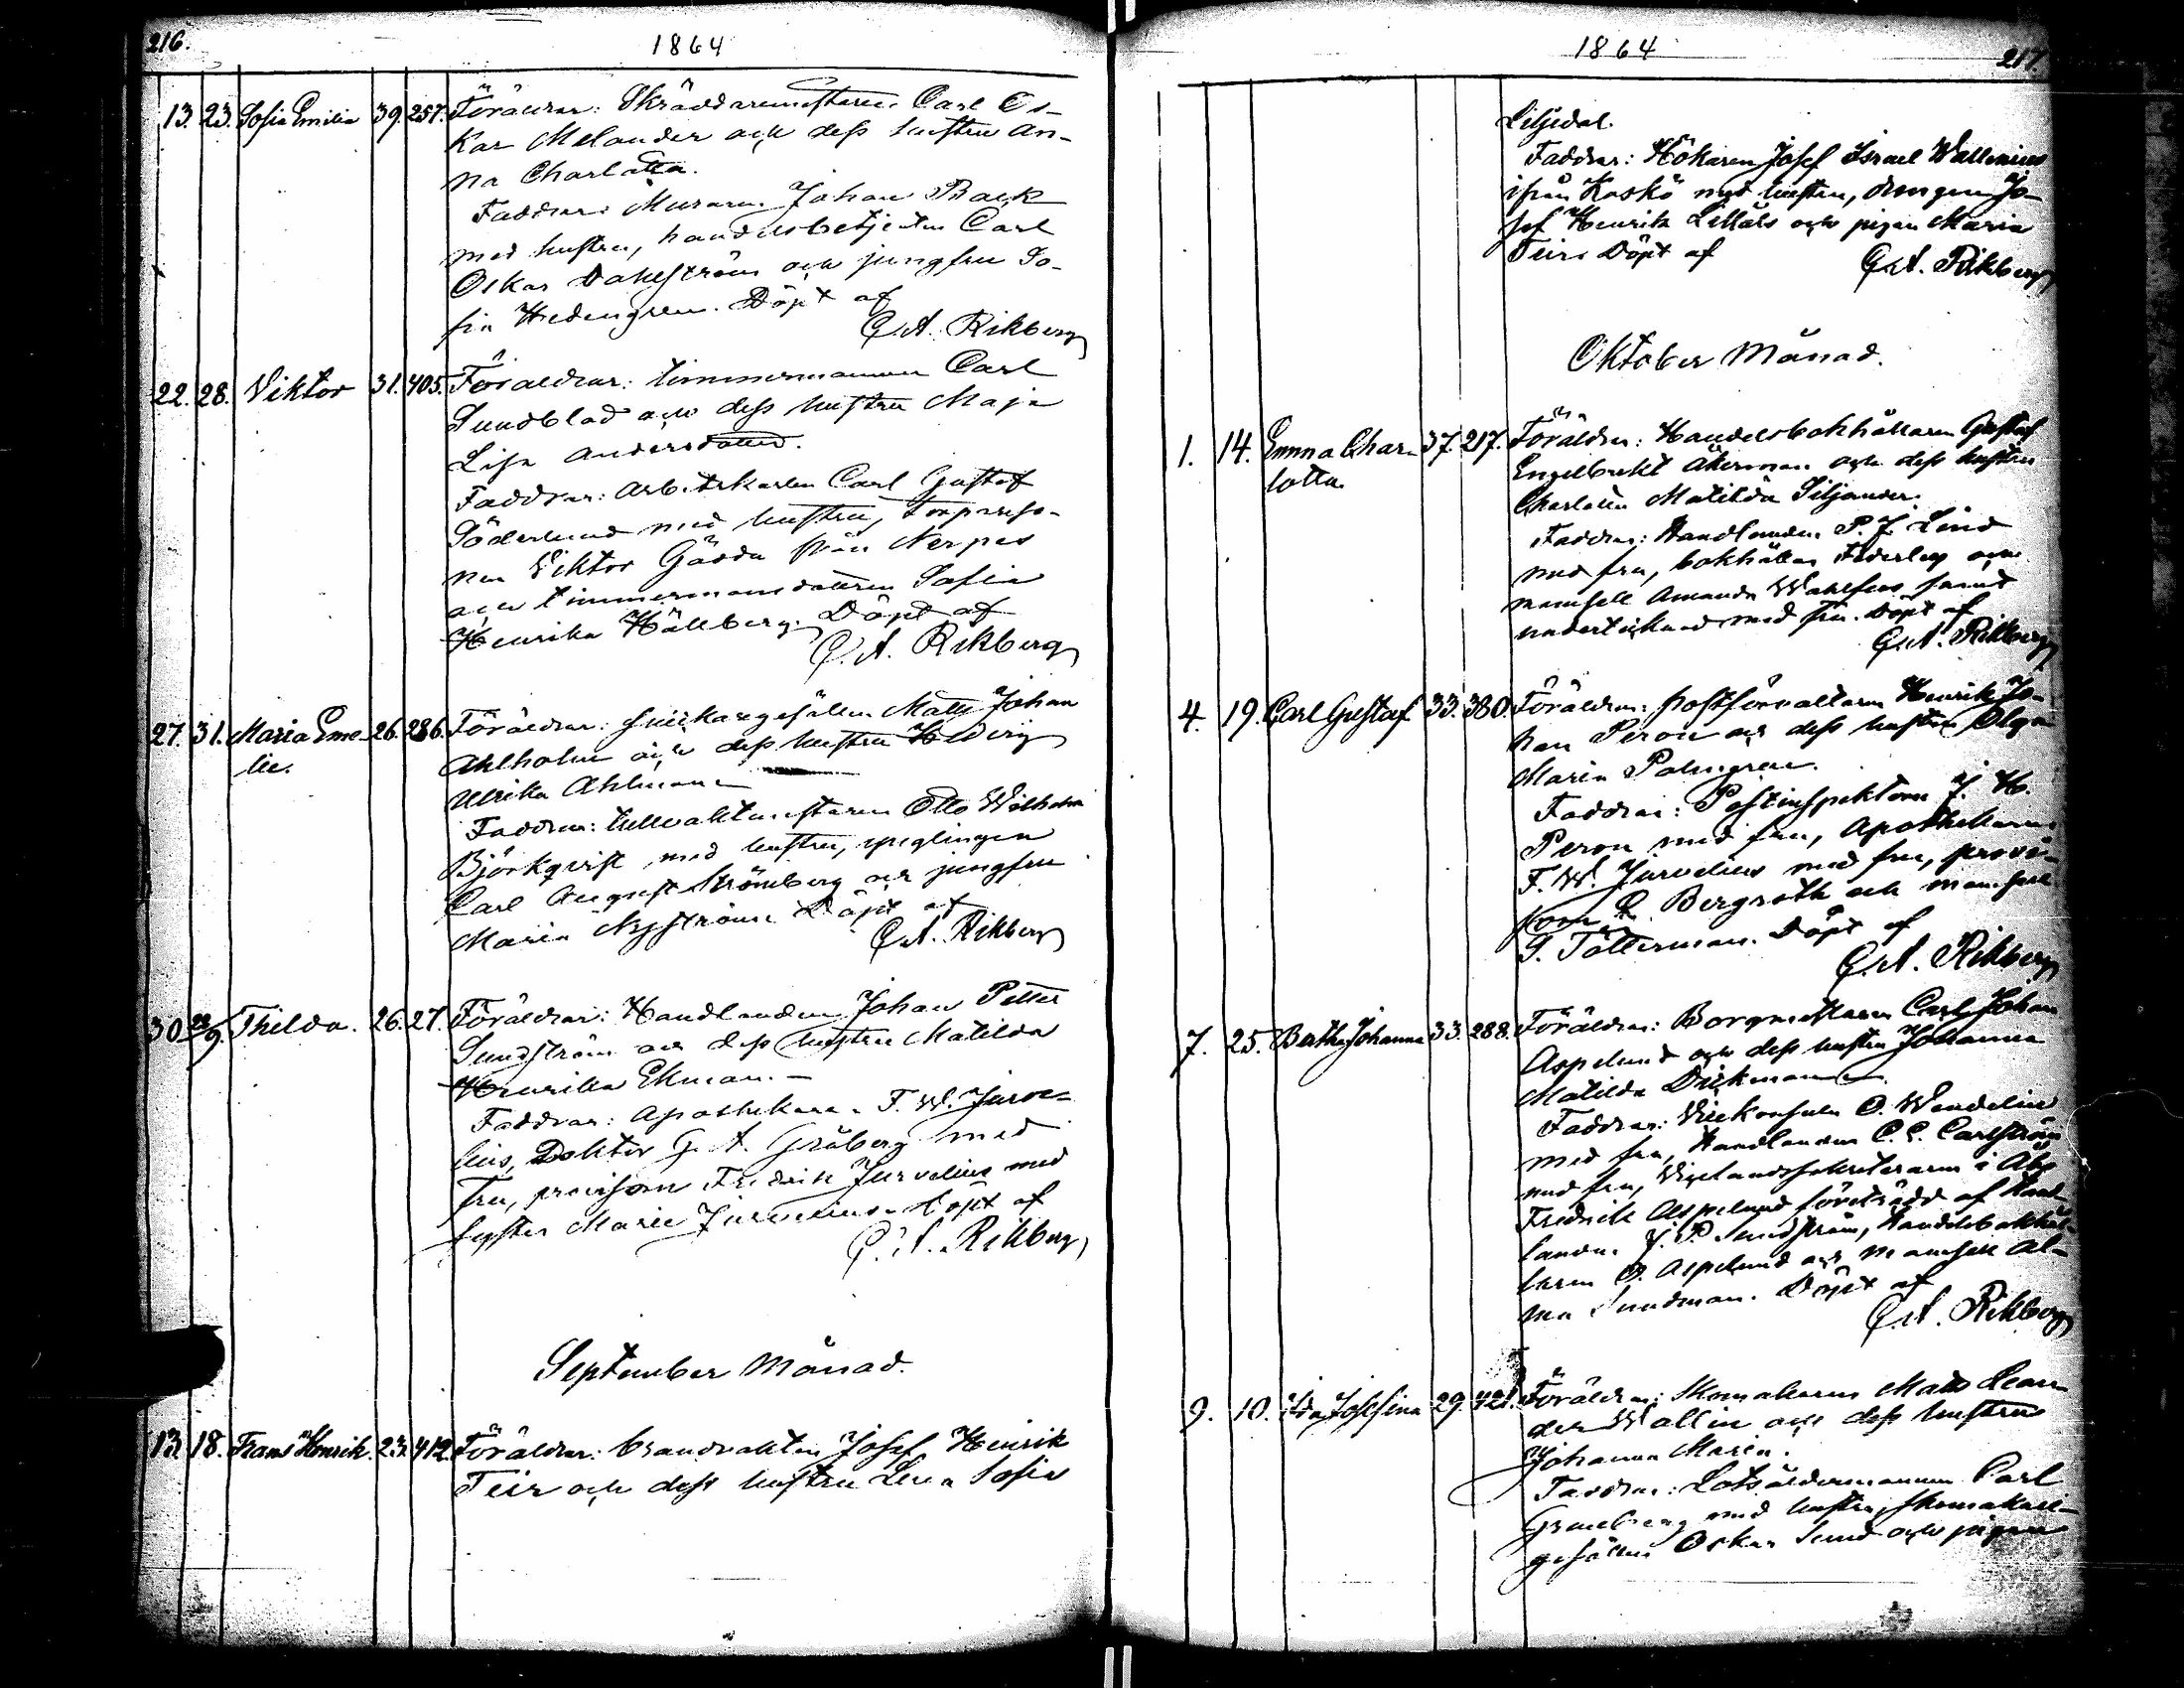 216.
1864
13. 23. Sofia Emilia 39. 257. Föräldrar: Skräddaremästaren Carl Os-
kar Melander och dess hustru An-
na Charlotta.
Faddrar: Muraren Johan Back
med hustru, handelsbetjenten Carl
Oskar Dahlström och jungfru So-
fia Hedengren. Döpt af
G.A. Rikberg
22. 28. Viktor 31. 405. Föräldrar: timmermannen Carl
Sundblad och dess hustru Maja
Lisa Andersdotter.
Faddrar: Arbetskarlen Carl Gustaf
Söderlund med hustru, torpareso-
nen Viktor Gädda från Nerpes
och timmermansdottren Sofia
Henrika Hällberg. Döpt af
G.A. Rikberg
27. 31. Maria Eme- 26. 286. Föräldrar: snickaregesällen Matts Johan
lie.
Ahlholm och dess hustru Hedvig
Ulrika Ahlman
Faddrar: tullvaktmästaren Otto Wilhelm
Björkqvist med hustru, ynglingen
Carl August Strömberg och jungfru
Maria Nyström Döpt af
G.A. Rikberg
30. 22/9. Thilda. 26. 27. Föräldrar: Handlanden Johan Petter
Sundström och dess hustru Matilda
Henrika Ekman.-
Faddrar: Apothekaren F. W. Jurve-
lius, Doktor G. A. Gråberg med
fru, provisorn Fredrik Jurvelius med
syster Marie Jurvelius. Döpt af
G.A. Rikberg
September Månad.
13. 18. Frans Henrik. 23. 412. Föräldrar: brandvakten Josef Henrik
Teir och dess hustru Lena Sofia
1864
217.
Liljedal.
Faddrar: Hökaren Josef Israel Wallenius
ifrån Kaskö med hustru, drengen Jo-
sef Henrik Lillås och pigan Maria
Teir. Döpt af
G.A. Rikberg
Oktober Månad.
1. 14. Emma Char- 37. 217. Föräldrar: Handelsbokhållaren Gustaf
lotta
Engelbrekt Åkerman och dess hustru
Charlotta Matilda Siljander.
Faddrar: Handlanden P. J. Lind
med fru, bokhållar Federley och
mamsell Amanda Wahlfors samt
undertecknad med fru. Döpt af
G.A. Rikberg
4. 19. Carl Gustaf 33. 380. Föräldrar: postförvaltaren Henrik Jo-
han Peron och dess hustru Olga
Maria Palmgren.
Faddrar: Postinspektoren J. H.
Peron med fru, Apothekaren
F. W. Jurvelius med fru, provi-
sorn Bergroth och mamsell
G. Tötterman. Döpt af
G.A. Rikberg
7. 25. Bertha Johanna 33. 288. Föräldrar: Borgmästaren Carl Johan
Aspelund och dess hustru Johanna
Matilda Dickman
Faddrar: Vicekonsuln O. Wendelin
med fru, Handlanden C. E. Carlström
med fru, Vicelandssekreteraren i Åbo
Fredrik Aspelund företrädd af Hand-
landen J. P. Sundström, Handelsbokhål-
laren O. Aspelund och mamsell Al-
ma Sundman. Döpt af
G.A. Rikberg
9. 10. Ida Josefina 29. 421. Föräldrar: Skomakaren Mats Lean-
der Wallin och dess hustru
Johanna Maria.
Faddrar: Lotsåldermannen Carl
med hustru, skomakare-
gesällen Oskar Sund och pigan